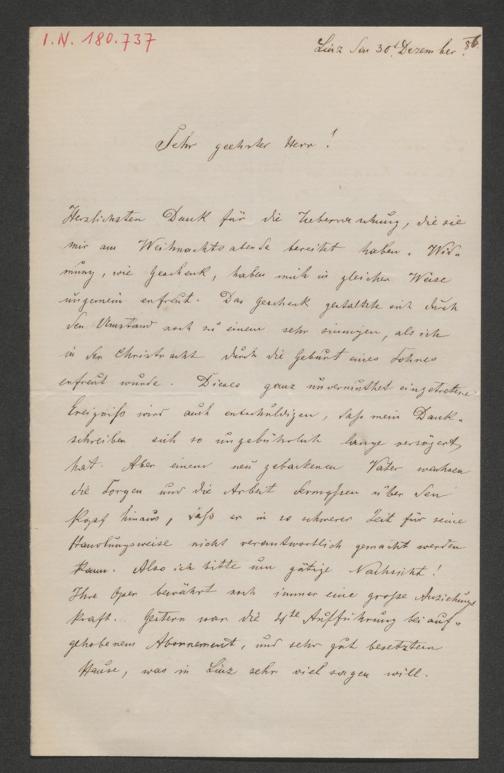 I.N. 180.737
Linz den 30t Dezember 86.
Sehr geehrter Herr!
Herzlichsten Dank für die Ueberraschung, die sie
mir am Weihnachtsabende bereitet haben. Wid-
mung, wie Geschenk, haben mich in gleicher Weise
ungemein erfreut. Das Geschenk gestaltete sich durch
den Umstand noch zu einem sehr sinnigen, als ich
in der Christnacht durch die Geburt eines Sohnes
erfreut wurde. Dieses ganz unvermuthet eingetretene
Ereigniß wird auch entschuldigen, daß mein Dank-
schreiben sich so ungebührlich lange verzögert
hat. Aber einem neu gebackenen Vater wachsen
die Sorgen und die Arbeit dermassen über den
Kopf hinaus, daß er in so schwerer Zeit für seine
Handlungsweise nicht verantwortlich gemacht werden
kann. Also ich bitte um gütige Nachsicht!
Ihre Oper bewährt noch immer eine große Anziehungs
kraft. Gestern war die 4te Aufführung bei auf-
gehobenem Abonnement, und sehr gut besetztem
Hause, was in Linz sehr viel sagen will.